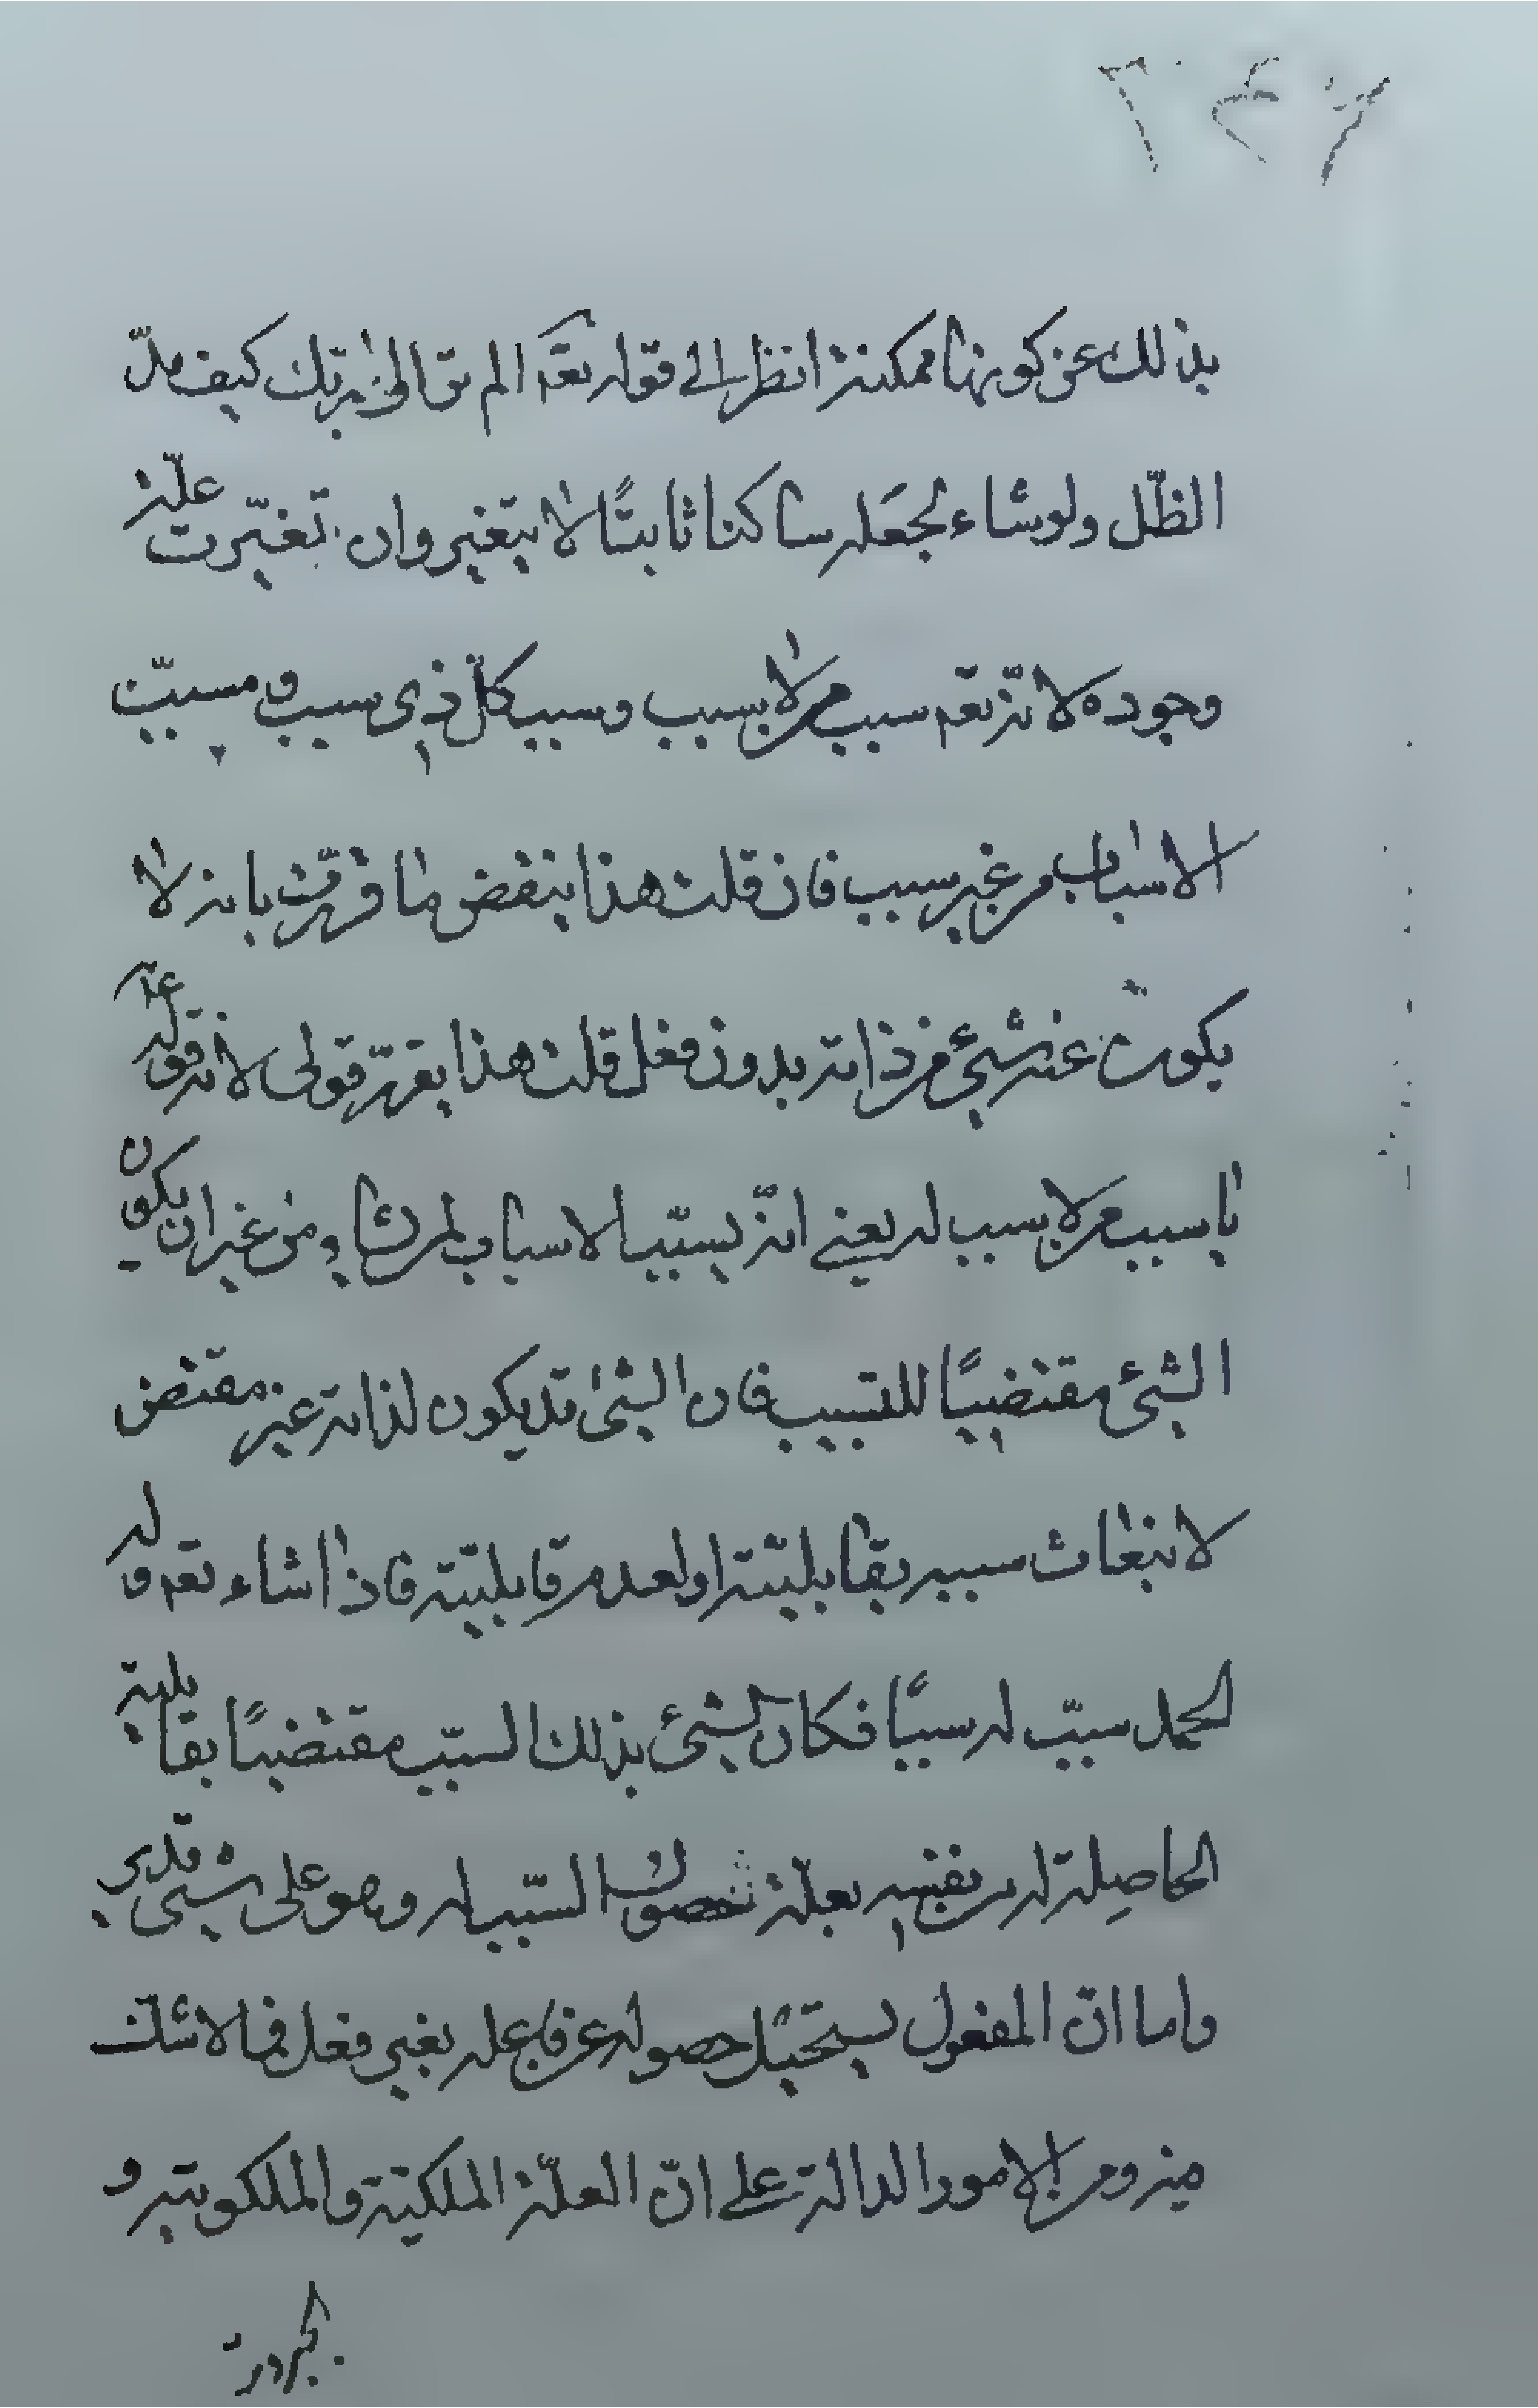 بذلك عن كونها ممكنة انظر الى قوله تعم الم تر الى ربك كيف مدّ
الظّل ولو شاء لجعَله ساكنا ثابتًا لا يتغير وان تغيّرت علّة
وجوده لانّه تعم سبب من لا بسبب وسبب كلّ ذي سبب و مسبّب
الاسباب من غير سبب فان قلت هذا ينقض ما قررت بانه لا
يكون عنه شئ من ذاته بدون فعل قلت هذا يقرّر قولى لانه قوله عم
يا سبب من لا سبب له يعنى انّه يسبّب الاسباب لمن شاء من غير ان يكون
الشئ مقتضيًا للتسبيب فان الشئ قد يكون لذاته غير مقتض
لانبعاث سببه بقابليّته او لعدم قابليّته فاذا شاء تعم وله
الحمد سبّب له سببًا فكان الشئ بذلك السبّب مقتضيًا بقابلية
الحاصِلة له من نفسِه بعلّة السّبب له وهو على شئ قدير
واما انّ المفعول يستحيل حصوله عن فاعله بغير فعل فما لا شك
منه ومن الامور الدالة على انّ العلّة الملكيّة والملكوتيه و